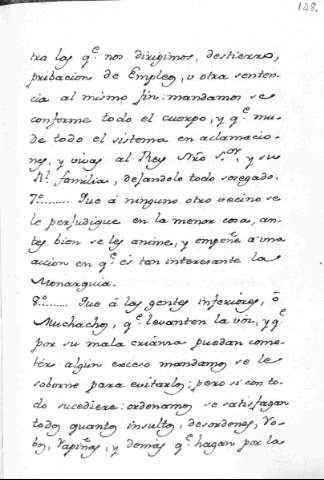 128.
tra los q.e nos dirigimos, destierro,
pribacion de Empleo, u otra senten-
cia al mismo fin: mandamos se
conforme todo el cuerpo, y q.e mu-
de todo el sistema en aclamacio-
nes, y vivas al Rey Nro S.or, y su
R.l familia, dejandolo todo sosegado.
7.o........ Que á ninguno otro vecino se
le perjudique en la menor cosa, an-
tes bien se les anime, y empeñe á una
accion en q.e es tan interesante la
Monarquia.
8.o....... Que á las gentes inferiores, ó
Muchachos, q.e levanten la vóz, y q.e
por su mala crianza puedan come-
tér algun exceso mandamos se le
soborne para evitarlos; pero si con to-
do sucediere: ordenamos se satisfagan
todos quantos insultos, desordenes, ro-
bos, rapiñas, y demás q.e hagan por la